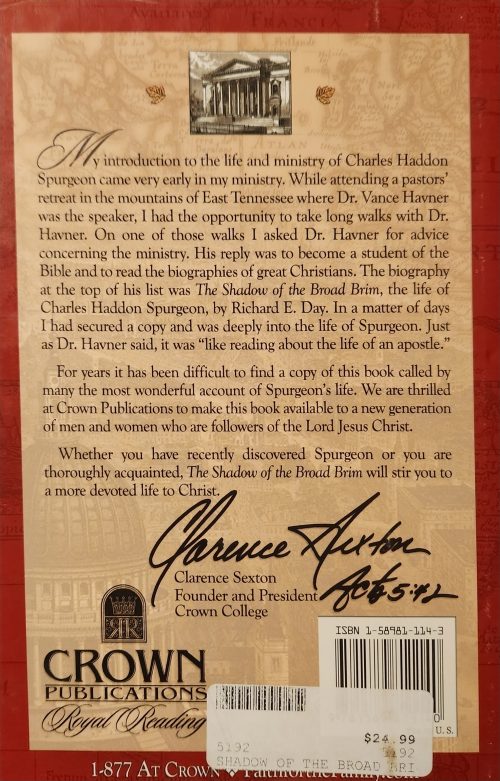 My introduction to the life and ministry of Charles Haddon
Spurgeon came very early in my ministry. While attending a pastors'
retreat in the mountains of East Tennessee where Dr. Vance Havner
was the speaker, I had the opportunity to take long walks with Dr.
Havner. On one of those walks I asked Dr. Havner for advice
concerning the ministry. His reply was to become a student of the
Bible and to read the biographies of great Christians. The biography
at the top of his list was The Shadow of the Broad Brim, the life of
Charles Haddon Spurgeon, by Richard E. Day. In a matter of days
I had secured a copy and was deeply into the life of Spurgeon. Just
as Dr. Havner said, it was “like reading about the life of an apostle.”
For years it has been difficult to find a copy of this book called by
many the most wonderful account of Spurgeon's life. We are thrilled
at Crown Publications to make this book available to a new generation
of men and women who are followers of the Lord Jesus Christ.
Whether you have recently discovered Spurgeon or you are
thoroughly acquainted, The Shadow of the Broad Brim will stir you to
a more devoted life to Christ.
Clarence Sexton
Acts 5:42
Clarence Sexton
Founder and President
Crown College
ISBN 1-58981-114-3
CROWN
PUBLICATIONS
Royal Reading
U.S.
$24.99
5192
5192
SHADOW OF THE BROAD BRI
1-877 AT CROWN